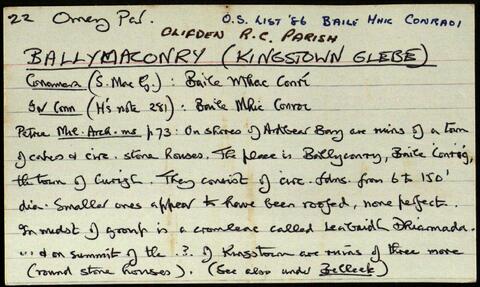 22 Omey Par. O.S. LIST '86 BAILE MHIC CONRAOI
CLIFDEN R.C. PARISH
BALLYMACONRY (KINGSTOWN GLEBE)
Connemara (S. Mac G.) : Baile Mhac Conrí
Iar Conn (H's note 281) : Baile Mhic Conroe
Petrie Mil. Arch. ms p 73 : On shores of Ardbear Bay are ruins of a town
of cahers & circ. stone houses. The place is Ballyconry, Baile
the town of They consist of circ. fdns. from 6 to 150'
dia. Smaller ones appear to have been roofed, none perfect.
In midst of group is a cromleac called Leabaidh Dhiarmada
... & on summit of the .?. of Kingstown are ruins of three more
(round stone houses). (See also under Belleek)